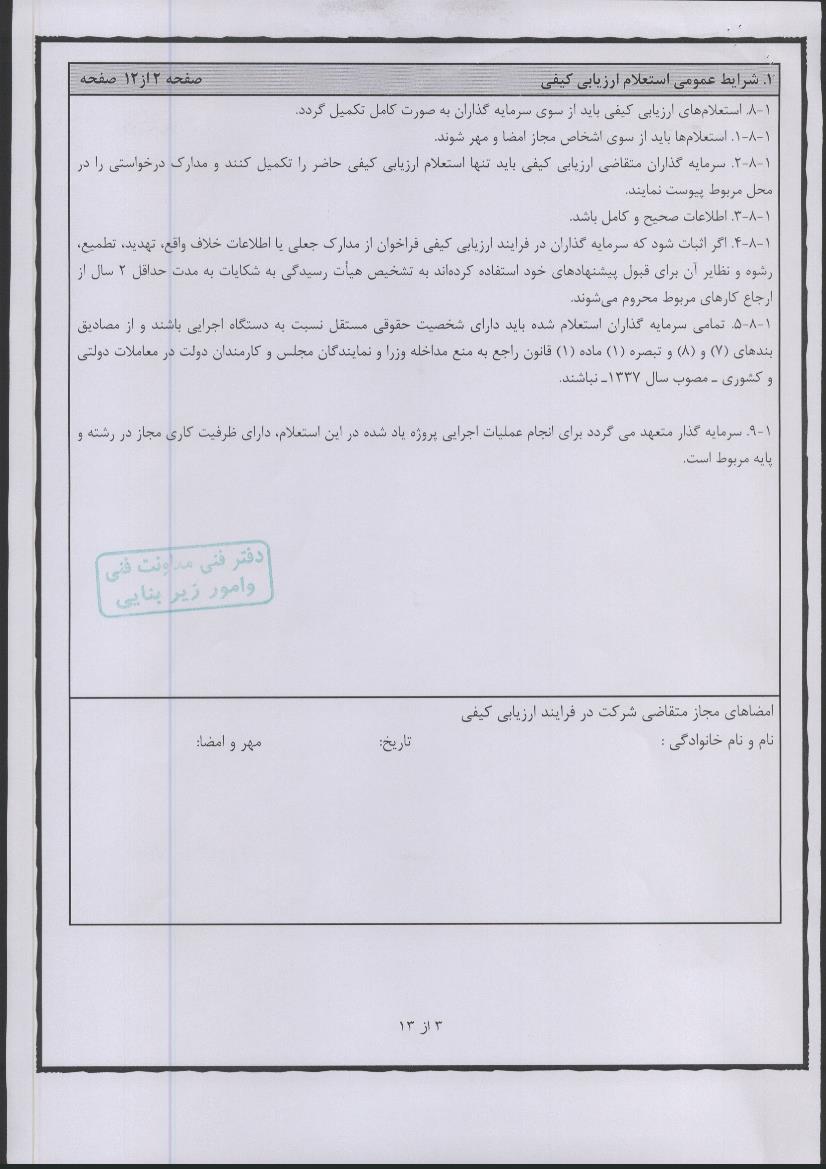 ۱. شرایط عمومی استعلام ارزیابی کیفی صفحه ۲ از ۱۲ صفحه
۱-۸. استعلام‌های ارزیابی کیفی باید از سوی سرمایه گذاران به صورت کامل تکمیل گردد.
۱-۸-۱. استعلام‌ها باید از سوی اشخاص مجاز امضا و مهر شوند.
۱-۸-۲. سرمایه گذاران متقاضی ارزیابی کیفی باید تنها استعلام ارزیابی کیفی حاضر را تکمیل کنند و مدارک درخواستی را در
محل مربوط پیوست نمایند.
۱-۸-۳. اطلاعات صحیح و کامل باشد.
۱-۸-۴. اگر اثبات شود که سرمایه گذاران در فرایند ارزیابی کیفی فراخوان از مدارک جعلی یا اطلاعات خلاف واقع، تهدید، تطمیع،
رشوه و نظایر آن برای قبول پیشنهادهای خود استفاده کرده‌اند به تشخیص هیأت رسیدگی به شکایات به مدت حداقل ۲ سال از
ارجاع کارهای مربوط محروم می‌شوند.
۱-۸-۵. تمامی سرمایه گذاران استعلام شده باید دارای شخصیت حقوقی مستقل نسبت به دستگاه اجرایی باشند و از مصادیق
بندهای (۷) و (۸) و تبصره (۱) ماده (۱) قانون راجع به منع مداخله وزرا و نمایندگان مجلس و کارمندان دولت در معاملات دولتی
و کشوری ـ مصوب سال ۱۳۳۷ـ نباشند.
۱-۹. سرمایه گذار متعهد می گردد برای انجام عملیات اجرایی پروژه یاد شده در این استعلام، دارای ظرفیت کاری مجاز در رشته و
پایه مربوط است.
دفتر فنی معاونت فنی
وامور زیر بنایی
امضاهای مجاز متقاضی شرکت در فرایند ارزیابی کیفی
نام و نام خانوادگی : تاریخ: مهر و امضا:
۳ از ۱۳